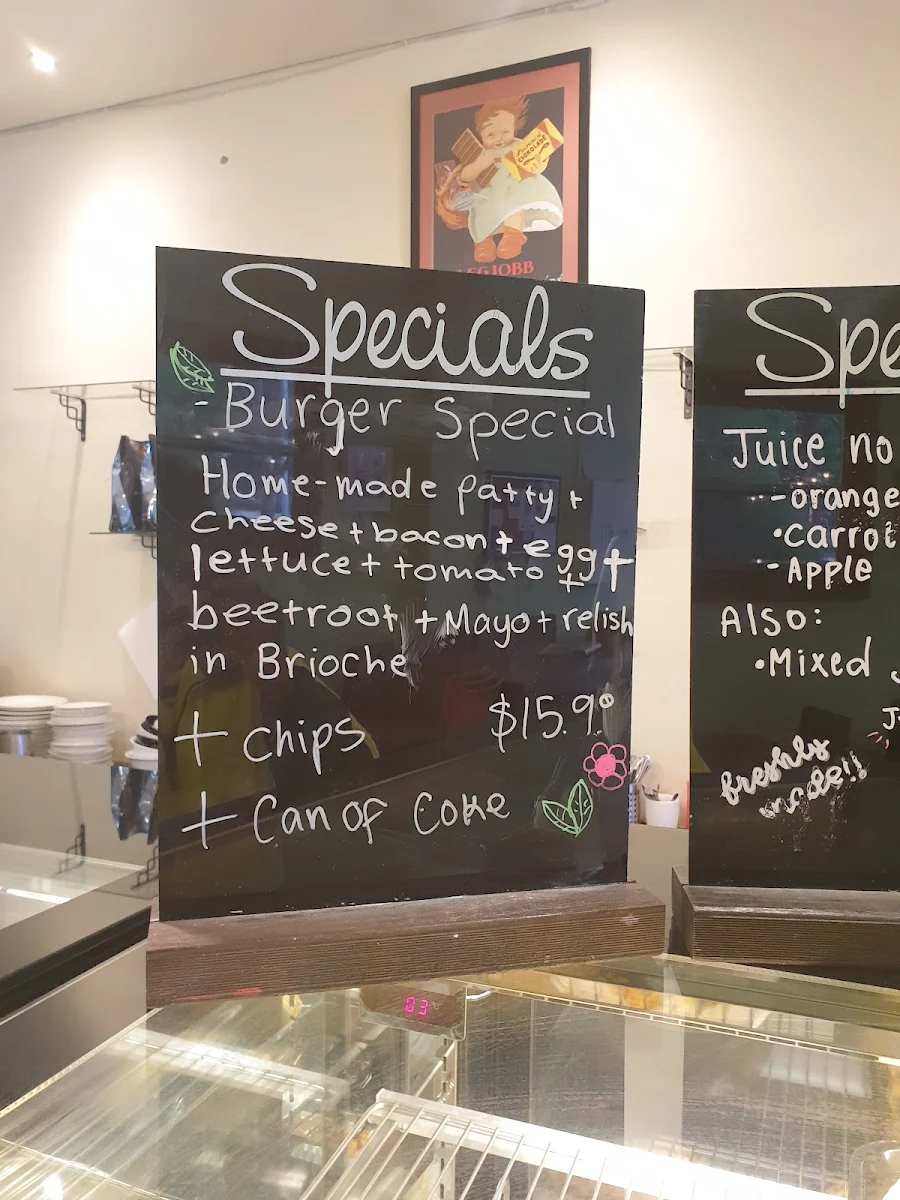 CSOKOLÁDÉ
LEGJOBB
Specials
- Burger Special
Home-made patty +
cheese + bacon + egg +
lettuce + tomato +
beetroot + Mayo + relish
in Brioche
+ chips $15.90
+ Can of Coke
Spe
Juice no
- orange
• Carrot
- Apple
Also:
• Mixed J
J
freshly
made!!
03